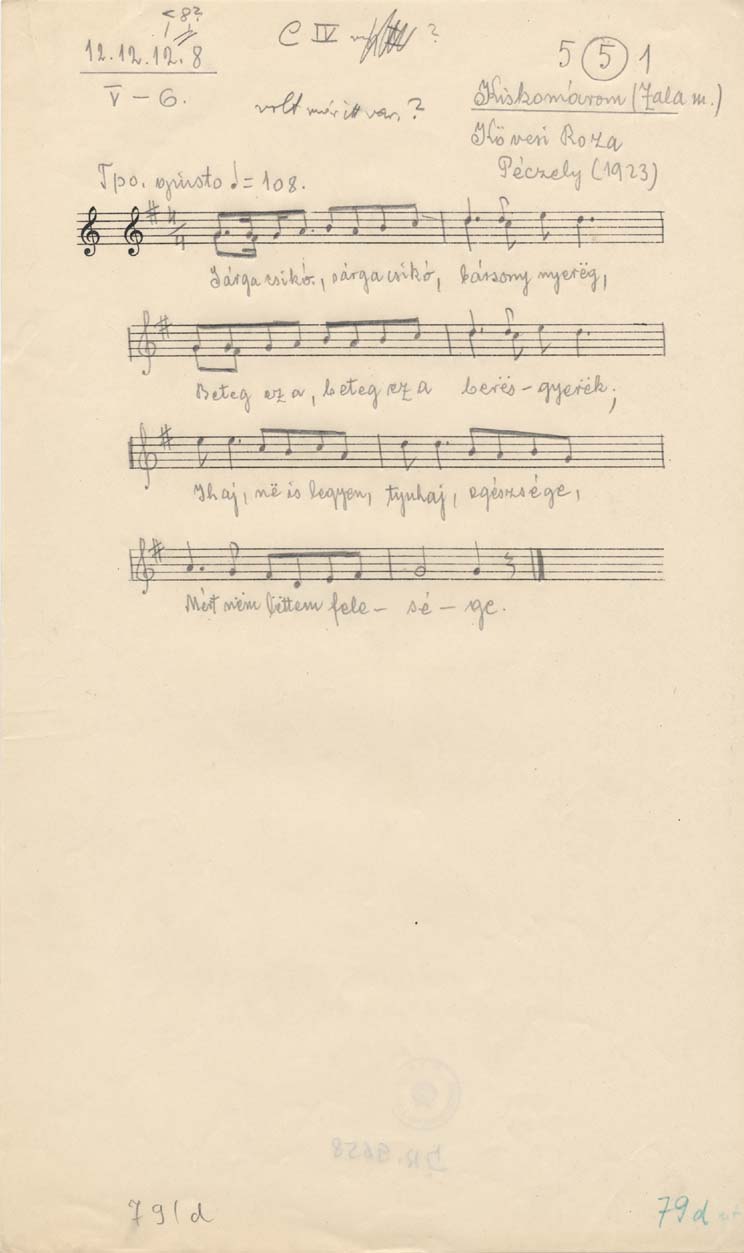 < 8?
12. 12. 12. 8
V – 6.
C IV ?
volt már itt var.?
5 5 1
Kiskomárom (Zala m.)
Kövesi Roza
Péczely (1923)
Tpo. giusto ♩= 108.
4/4
Sárga csikó, sárga csikó, bársony nyerëg,
Beteg ez a, beteg ez a bërës-gyerëk;
Ihaj, në is legyen, tyuhaj, egészsége,
Mért nëm lëttem fele- sé- ge.
79/d
79 d